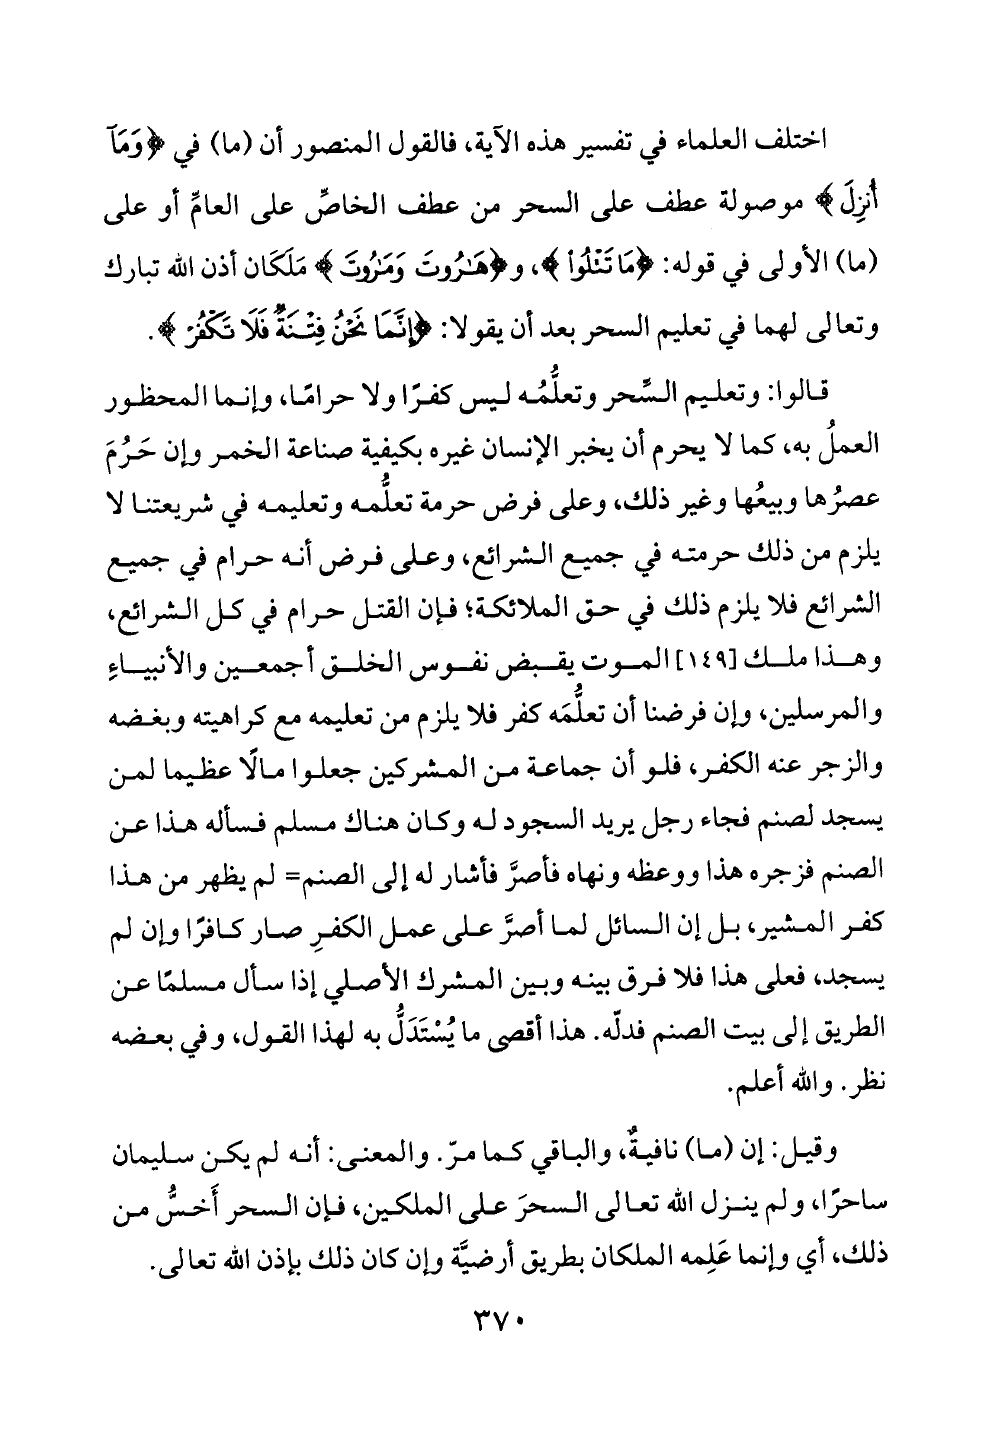 اختلف العلماء في تفسير هذه الآية، فالقول المنصور أن (ما) في ﴿وَمَآ
أُنزِلَ﴾ موصولة عطف على السحر من عطف الخاصِّ على العامِّ أو على
(ما) الأولى في قوله: ﴿مَا تَتْلُوا۟﴾، و﴿هَـٰرُوتَ وَمَـٰرُوتَ﴾ مَلَكَان أذن الله تبارك
وتعالى لهما في تعليم السحر بعد أن يقولا: ﴿إِنَّمَا نَحْنُ فِتْنَةٌ فَلَا تَكْفُرْ﴾.
قالوا: وتعليم السِّحر وتعلُّمُه ليس كفرًا ولا حرامًا، وإنما المحظور
العملُ به، كما لا يحرم أن يخبر الإنسان غيره بكيفية صناعة الخمر وإن حَرُمَ
عصرُها وبيعُها وغير ذلك، وعلى فرض حرمة تعلُّمه وتعليمه في شريعتنا لا
يلزم من ذلك حرمته في جميع الشرائع، وعلى فرض أنه حرام في جميع
الشرائع فلا يلزم ذلك في حق الملائكة؛ فإن القتل حرام في كل الشرائع،
وهذا ملك [١٤٩] الموت يقبض نفوس الخلق أجمعين والأنبياءِ
والمرسلين، وإن فرضنا أن تعلُّمَه كفر فلا يلزم من تعليمه مع كراهيته وبغضه
والزجر عنه الكفر، فلو أن جماعة من المشركين جعلوا مالًا عظيما لمن
يسجد لصنم فجاء رجل يريد السجود له وكان هناك مسلم فسأله هذا عن
الصنم فزجره هذا ووعظه ونهاه فأصرَّ فأشار له إلى الصنم= لم يظهر من هذا
كفر المشير، بل إن السائل لما أصرَّ على عمل الكفرِ صار كافرًا وإن لم
يسجد، فعلى هذا فلا فرق بينه وبين المشرك الأصلي إذا سأل مسلمًا عن
الطريق إلى بيت الصنم فدلّه. هذا أقصى ما يُسْتَدَلُّ به لهذا القول، وفي بعضه
نظر. والله أعلم.
وقيل: إن (ما) نافيةٌ، والباقي كما مرّ. والمعنى: أنه لم يكن سليمان
ساحرًا، ولم ينزل الله تعالى السحرَ على الملكين، فإن السحر أَخسُّ من
ذلك، أي وإنما عَلِمه الملكان بطريق أرضيَّة وإن كان ذلك بإذن الله تعالى.
٣٧٠